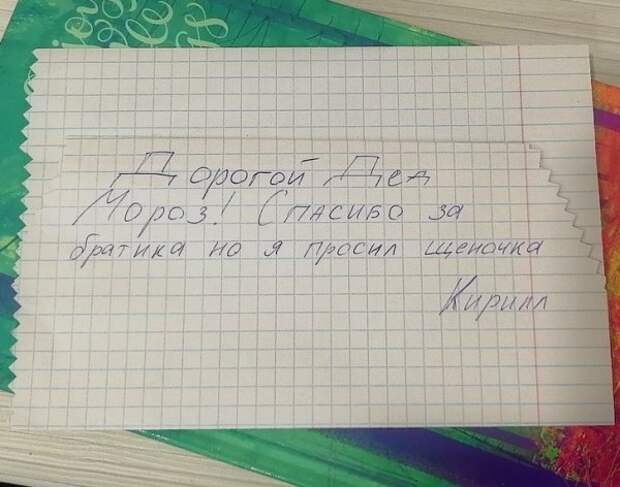 Дорогой Дед
Мороз! Спасибо за
братика но я просил щеночка
Кирилл